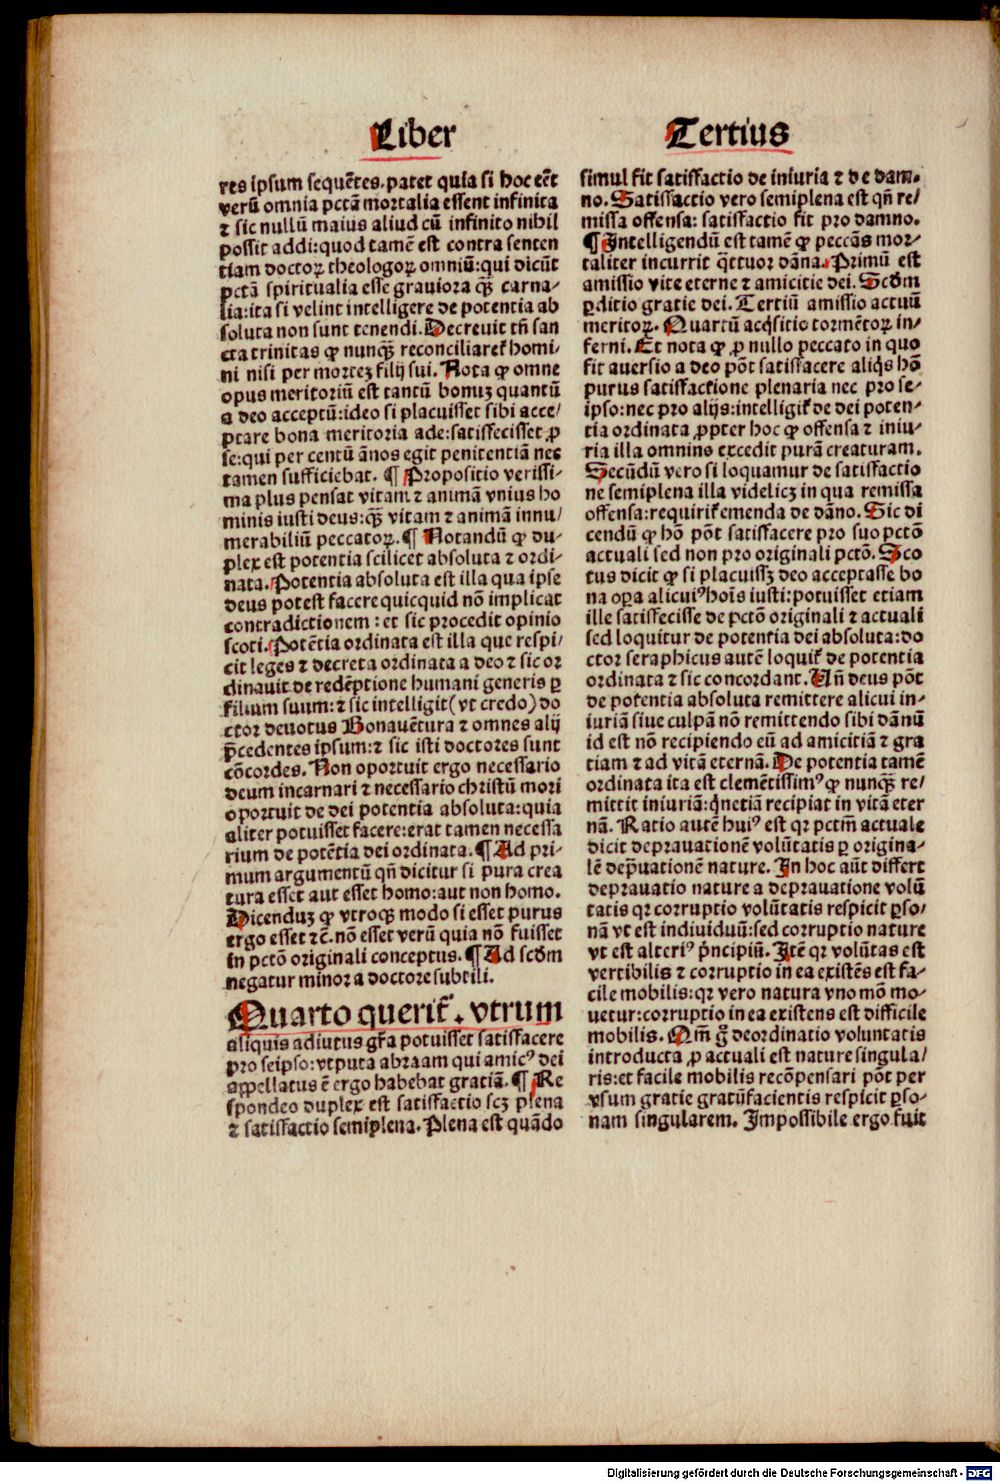 Liber Tertius
res ipsum sequētes. patet quia si hoc eēt
verū omnia pctā mortalia essent infinita
⁊ sic nullū maius aliud cū infinito nihil
possit addi: quod tamē est contra senten
tiam doctoꝝ theologoꝝ omniū: qui dicūt
pctā spiritualia esse grauiora qꝫ̄ carna-
lia: ita si velint intelligere de potentia ab
soluta non sunt tenendi. Decreuit tn̄ san
cta trinitas ꝙ nunqꝫ̄ reconciliaret᷑ homi-
ni nisi per morteꝫ filij sui. Nota ꝙ omne
opus meritoriū est tantū bonuꝫ quantū
a deo acceptū: ideo si placuisset sibi acce/
ptare bona meritoria ade: satisfecisset ꝓ
se: qui per centū ānos egit penitentiā nec
tamen sufficiebat. ¶ Propositio verissi-
ma plus pensat vitam ⁊ animā vnius ho
minis iusti deus: qꝫ̄ vitam ⁊ animā innu/
merabiliū peccatoꝝ. ¶ Notandū ꝙ du-
plex est potentia scilicet absoluta ⁊ ordi-
nata. Potentia absoluta est illa qua ipse
deus potest facere quicquid nō implicat
contradictionem: et sic procedit opinio
scoti. Potētia ordinata est illa que respi/
cit leges ⁊ decreta ordinata a deo ⁊ sic or
dinauit de redēptione humani generis ꝑ
filium suum: ⁊ sic intelligit (vt credo) do
ctor deuotus Bonauētura ⁊ omnes alij
p̄cedentes ipsum: ⁊ sic isti doctores sunt
cōcordes. Non oportuit ergo necessario
deum incarnari ⁊ necessario christū mori
oportuit de dei potentia absoluta: quia
aliter potuisset facere: erat tamen necessa
rium de potētia dei ordinata. ¶ Ad pri-
mum argumentū qn̄ dicitur si pura crea
tura esset aut esset homo: aut non homo.
Dicenduꝫ ꝙ vtroqꝫ modo si esset purus
ergo esset ⁊c̄. nō esset verū quia nō fuisset
in pctō originali conceptus. ¶ Ad scd̄m
negatur minor a doctore subtili.
Quarto querit᷑. vtrum
aliquis adiutus gr̄a potuisset satisfacere
pro seipso: vtputa abraam qui amicꝰ dei
appellatus ē ergo habebat gratiā. ¶ Re
spondeo duplex est satisfactio scꝫ plena
⁊ satisfactio semiplena. Plena est quādo
simul fit satisfactio de iniuria ⁊ de dam-
no. Satisfactio vero semiplena est qn̄ re/
missa offensa: satisfactio fit pro damno.
¶ Intelligendū est tamē ꝙ peccās mor-
taliter incurrit q̈ttuor dāna. Primū est
amissio vite eterne ⁊ amicitie dei. Scd̄m
ꝑditio gratie dei. Tertiū amissio actuū
meritoꝝ. Quartū acq̇sitio tormētoꝝ in-
ferni. Et nota ꝙ ꝓ nullo peccato in quo
fit auersio a deo pōt satisfacere aliq̇s hō
purus satisfactione plenaria nec pro se-
ipso: nec pro alijs: intelligit᷑ de dei poten-
tia ordinata ꝓpter hoc ꝙ offensa ⁊ iniu-
ria illa omnino excedit purā creaturam.
Secūdū vero si loquamur de satisfactio
ne semiplena illa videlicꝫ in qua remissa
offensa: requirit᷑ emenda de dāno. Sic di
cendū ꝙ hō pōt satisfacere pro suo pctō
actuali sed non pro originali pctō. Sco
tus dicit ꝙ si placuissꝫ deo acceptasse bo
na oꝑa alicuiꝰ hoīs iusti: potuisset etiam
ille satisfecisse de pctō originali ⁊ actuali
sed loquitur de potentia dei absoluta: do
ctor seraphicus autē loquit᷑ de potentia
ordinata ⁊ sic concordant. Vn̄ deus pōt
de potentia absoluta remittere alicui in-
iuriā siue culpā nō remittendo sibi dānū
id est nō recipiendo eū ad amicitiā ⁊ gra
tiam ⁊ ad vitā eternā. De potentia tamē
ordinata ita est clemētissimꝰ ꝙ nunqꝫ̄ re/
mittit iniuriā: q̇netiā recipiat in vitā eter
nā. Ratio autē huiꝰ est qꝛ pctm̄ actuale
dicit deprauationē volūtatis ꝑ origina-
lē dep̄uationē nature. In hoc aūt differt
deprauatio nature a deprauatione volū
tatis qꝛ corruptio volūtatis respicit ꝑso-
nā vt est indiuiduū: sed corruptio nature
vt est alteriꝰ p̄ncipiū. Itē qꝛ volūtas est
vertibilis ⁊ corruptio in ea existēs est fa-
cile mobilis: qꝛ vero natura vno mō mo-
uetur: corruptio in ea existens est difficile
mobilis. Qm̄ g̊ deordinatio voluntatis
introducta ꝓ actuali est nature singula/
ris: et facile mobilis recōpensari pōt per
vsum gratie gratūfacientis respicit ꝑso-
nam singularem. Impossibile ergo fuit
Digitalisierung gefördert durch die Deutsche Forschungsgemeinschaft - DFG